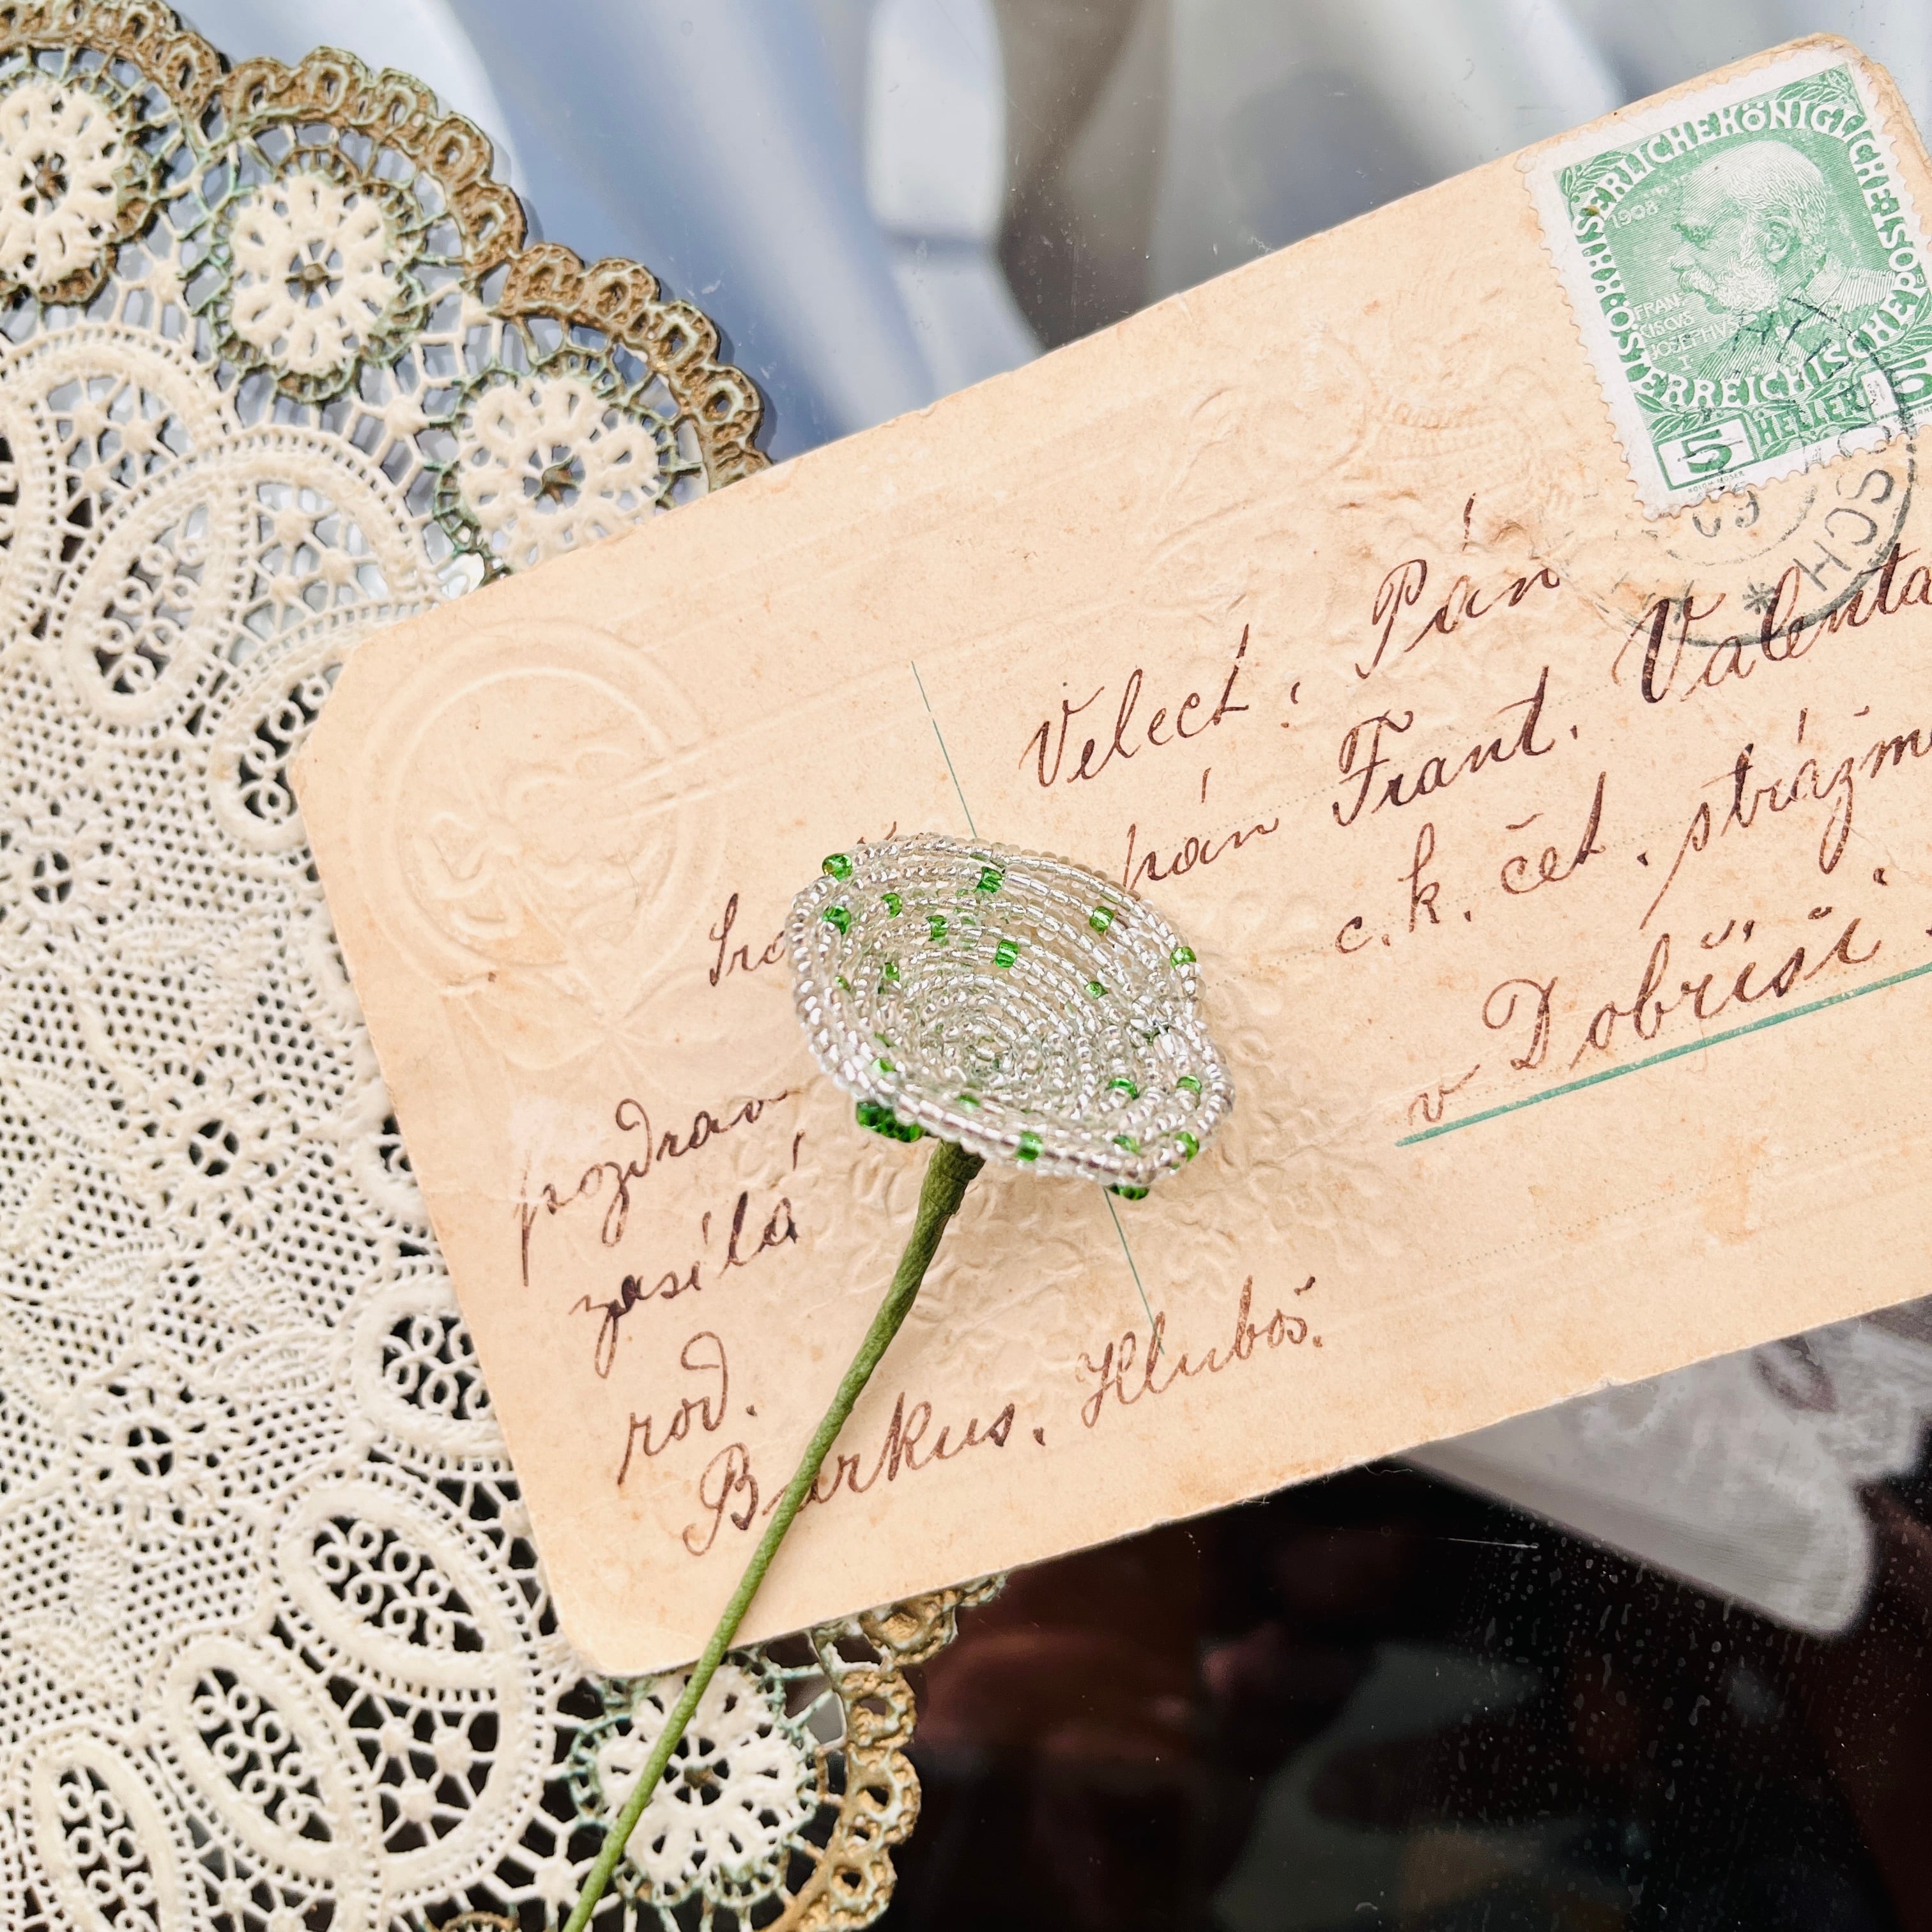 KAISERLICHE KÖNIGLICHE ÖSTERREICHISCHE POST
1908
FRAN-
CISCVS
JOSEPHVS
I.
5 HELLER
09
HOS
Velect. Pán
pán Frant. Valenta
c. k. čet. strážm
v Dobříši.
Src
pozdrav
zasílá
rod.
Burkus. Hluboš.